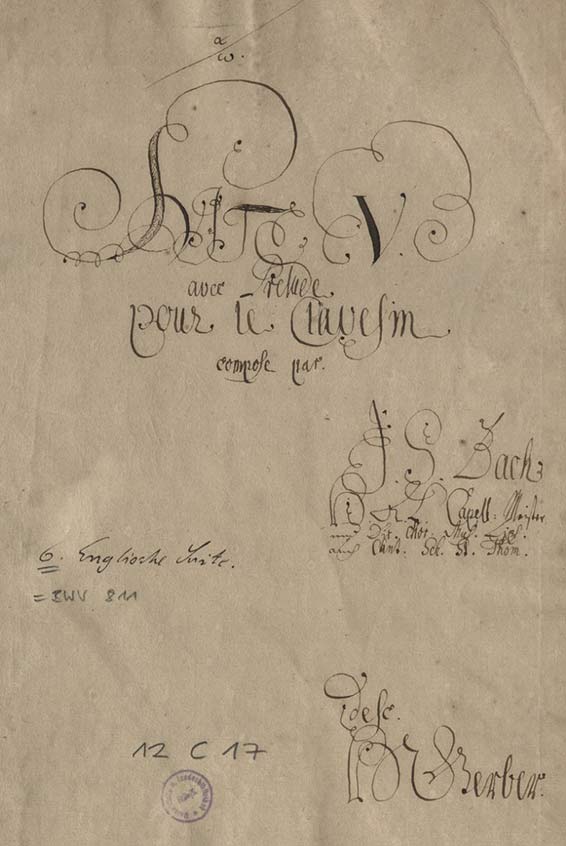 α
ω.
SUITE V.
avec Prelude
pour le Clavesin
composé par.
J. S. Bach
Capell. Meister
Dir. Chor. Mus. Lips.
auch Cant. Sch. St. Thom.
6. Englische Suite.
= BWV 811
desc.
HN Gerber.
12 C 17